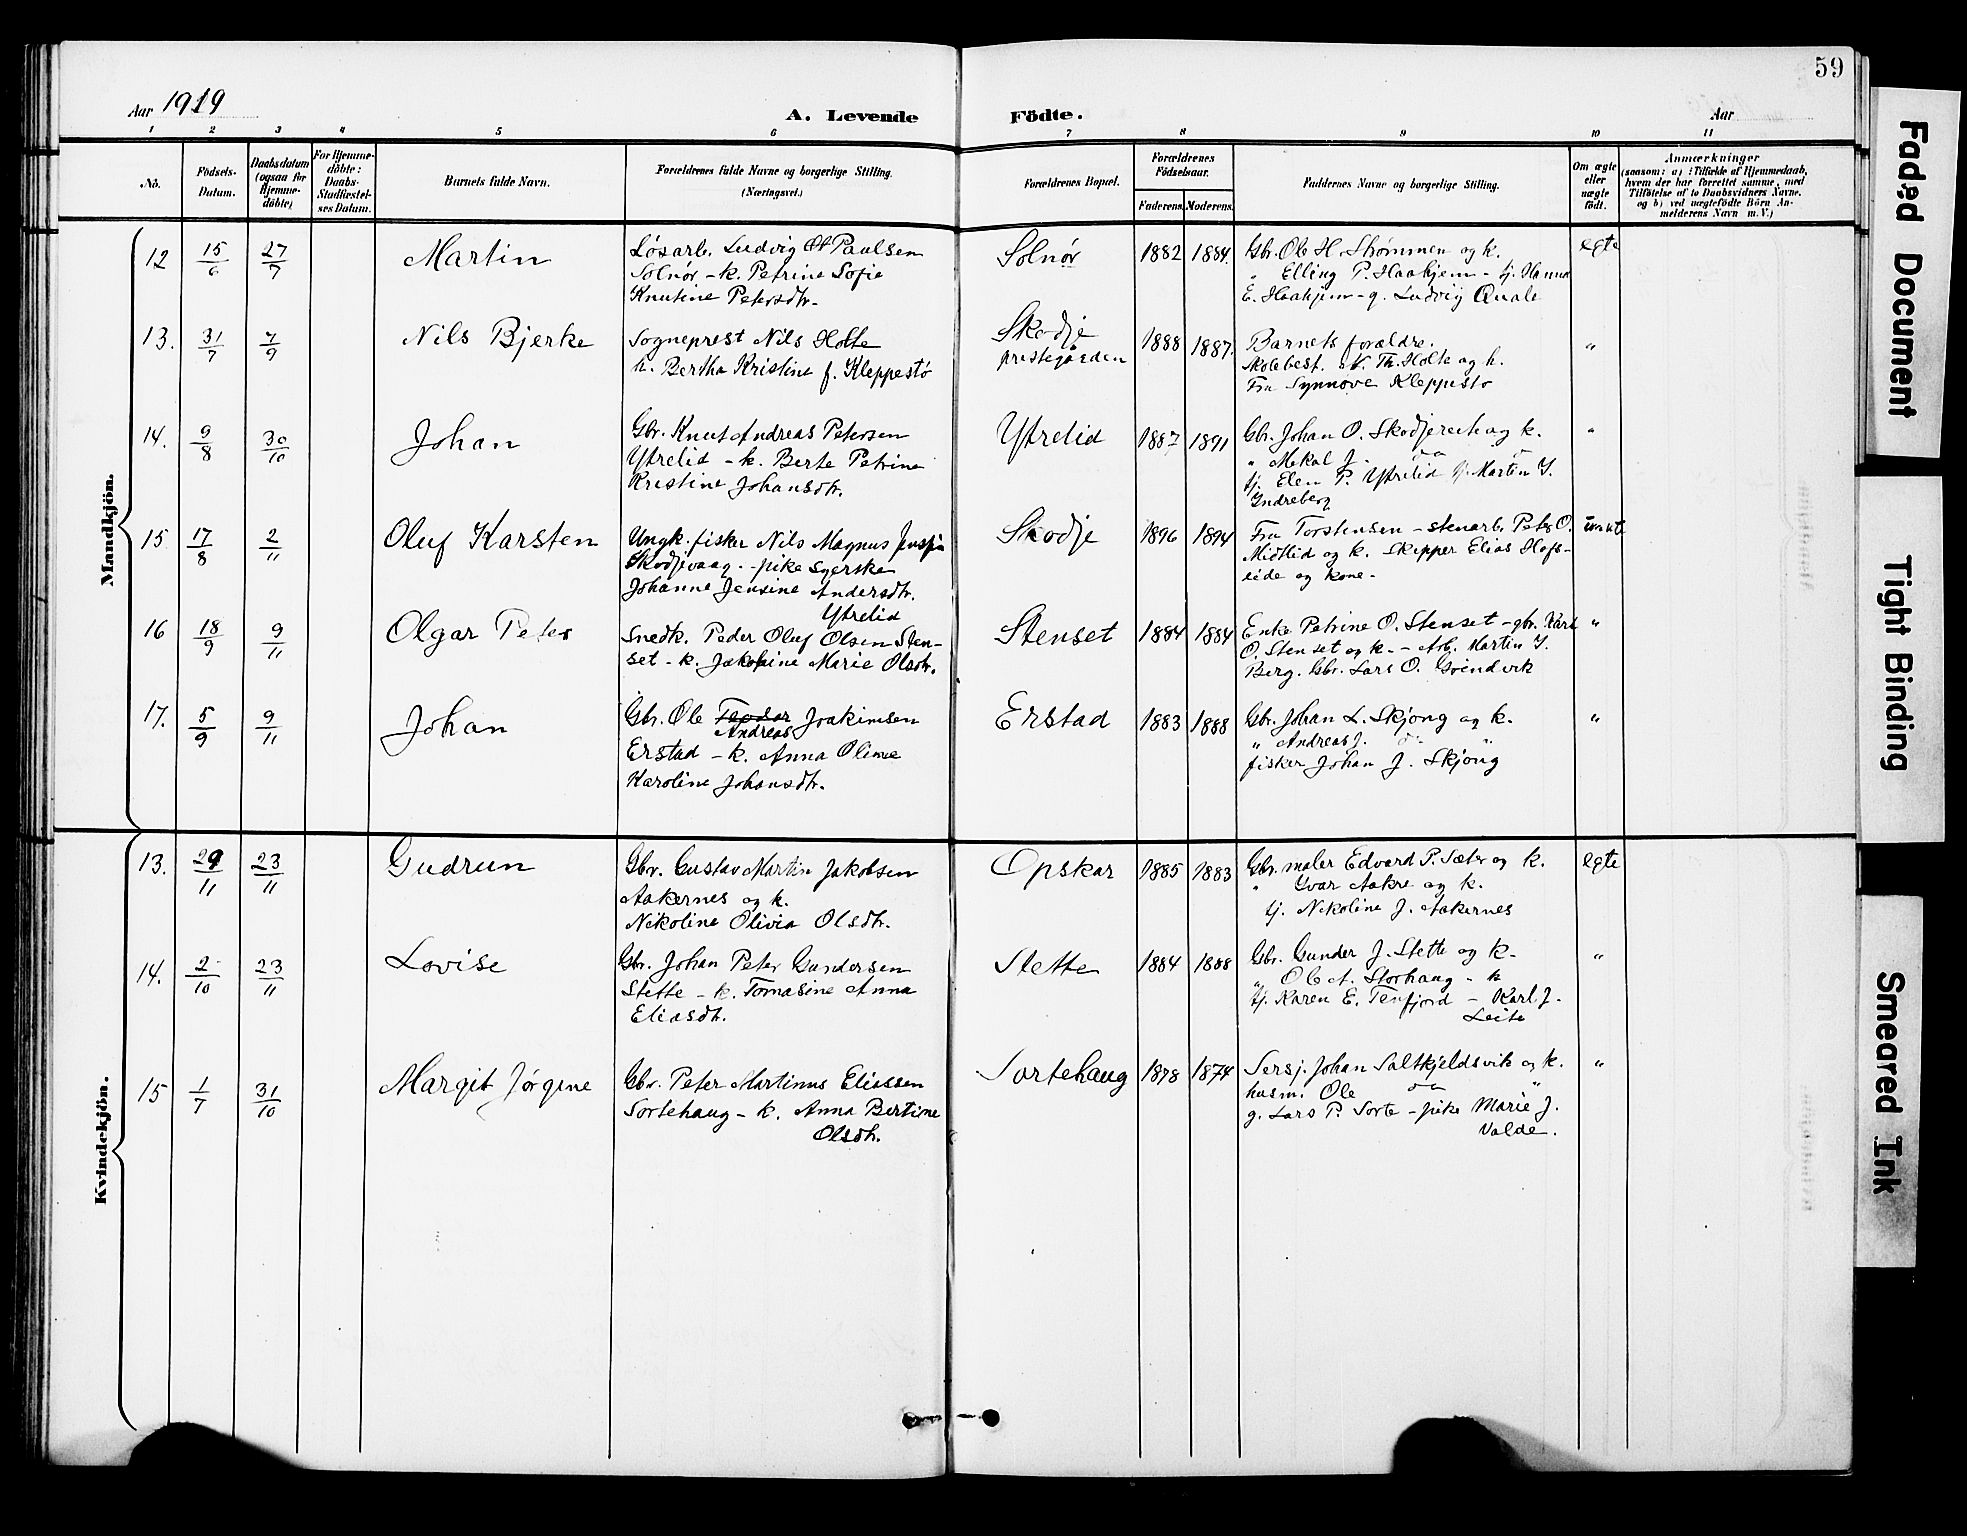 59
Aar 1919 A. Levende Födte. Aar
1 2 3 4 5 6 7 8 9 10 11
No.
Födsels-Datum.
Daabsdatum (ogsaa for Hjemme-döbte)
For Hjemme-döbte: Daabs-Stadfæstel-ses Datum.
Barnets fulde Navn.
Forældrenes fulde Navne og borgerlige Stilling.
(Næringsvei.)
Forældrenes Bopæl.
Forældrenes Födselsaar.
Faderens. Moderens.
Faddernes Navne og borgerlige Stilling.
Om ægte eller uægte födt.
Anmærkninger
(saasom: a) i Tilfælde af Hjemmedaab,
hvem der har forrettet samme, med
Tilföielse af to Daabsvidners Navne.
og b) ved uægtefödte Börn An-
melderens Navn m.V.)
Mandkjön.
12 15/6 27/7 Martin
Løsarb. Ludvig Paulsen
Solnør - k. Petrine Sofie
Knutine Petersdtr.
Solnør 1882 1884.
Gbr. Ole H. Strømmen og k.
" Elling P. Haahjem - tj. Hanna
E. Haahjem - g. Ludvig Quale
egte
13. 31/7 7/9 Nils Bjerke
Sogneprest Nils Holte
h. Bertha Kristine f. Kleppestø
Skodje
prestegården
1888 1887.
Barnets forældre.
Skolebest. Th. Holte og h.
Fru Synnøve Kleppestø
"
14. 9/8 30/10 Johan
Gbr. Knut Andreas Petersen
Ytrelid - k. Berte Petrine
Kristine Johansdtr.
Ytrelid 1887 1891
Gbr. Johan O. og k.
" Mekal J.
tj. Elen P. Ytrelid tj. Martin I.
Indreberg
"
15 17/8 2/11 Oluf Karsten
Ungk. fisker Nils Magnus
Skodjevaag - pike syerske
Johanne Jensine Andersdtr.
Ytrelid
Skodje 1896 1894
Fru Torstensen - stenarb. Peter O.
Midtlid og k. Skipper Elias Hofs-
eide og kone -
16 18/9 9/11 Olgar Peter
Snedk. Peder Oluf Olsen Sten-
set - k. Jakobine Marie Olsdtr.
Stenset 1884 1884
Enke Petrine O. Stenset - gbr. Karl
O. Stenset og k. - Arb. Martin I.
Berg. Gbr. Lars O.
"
17. 5/9 9/11 Johan
Gbr. Ole Teodor Joakimsen
Andreas
Erstad - k. Anna Oline
Karoline Johansdtr.
Erstad 1883 1888
Gbr. Johan L. Skjong og k.
" Andreas J. do "
fisker Johan J. Skjong
"
Kvindekjön.
13. 29/11 23/11 Gudrun
Gbr. Gustav Martin Jakobsen
Aakernes og k.
Nikoline Olivia Olsdtr.
Opskar 1885 1883
Gbr. maler Edvard P. Sæter og k.
" Ivar Aakre og k.
tj. Nikoline J. Aakernes
egte
14. 2/10 23/11 Lovise
Gbr. Johan Peter Gundersen
Stette - k. Tomasine Anna
Eliasdtr.
Stette 1884 1888
Gbr. Gunder J. Stette og k -
" Ole A. Storhaug - k
tj. Karen E. Tenfjord - Karl J.
Leite
"
15 1/7 31/10 Margit Jørgine
Gbr. Peter Martinus Eliassen
Sortehaug - k. Anna Bertine
Olsdtr.
Sortehaug 1878 1874
Sersj. Johan Saltkjeldsvik og k.
husm. Ole do "
g. Lars P. Sorte - pike Marie J.
Valde.
"
Faded Document
Tight Binding
Smeared Ink